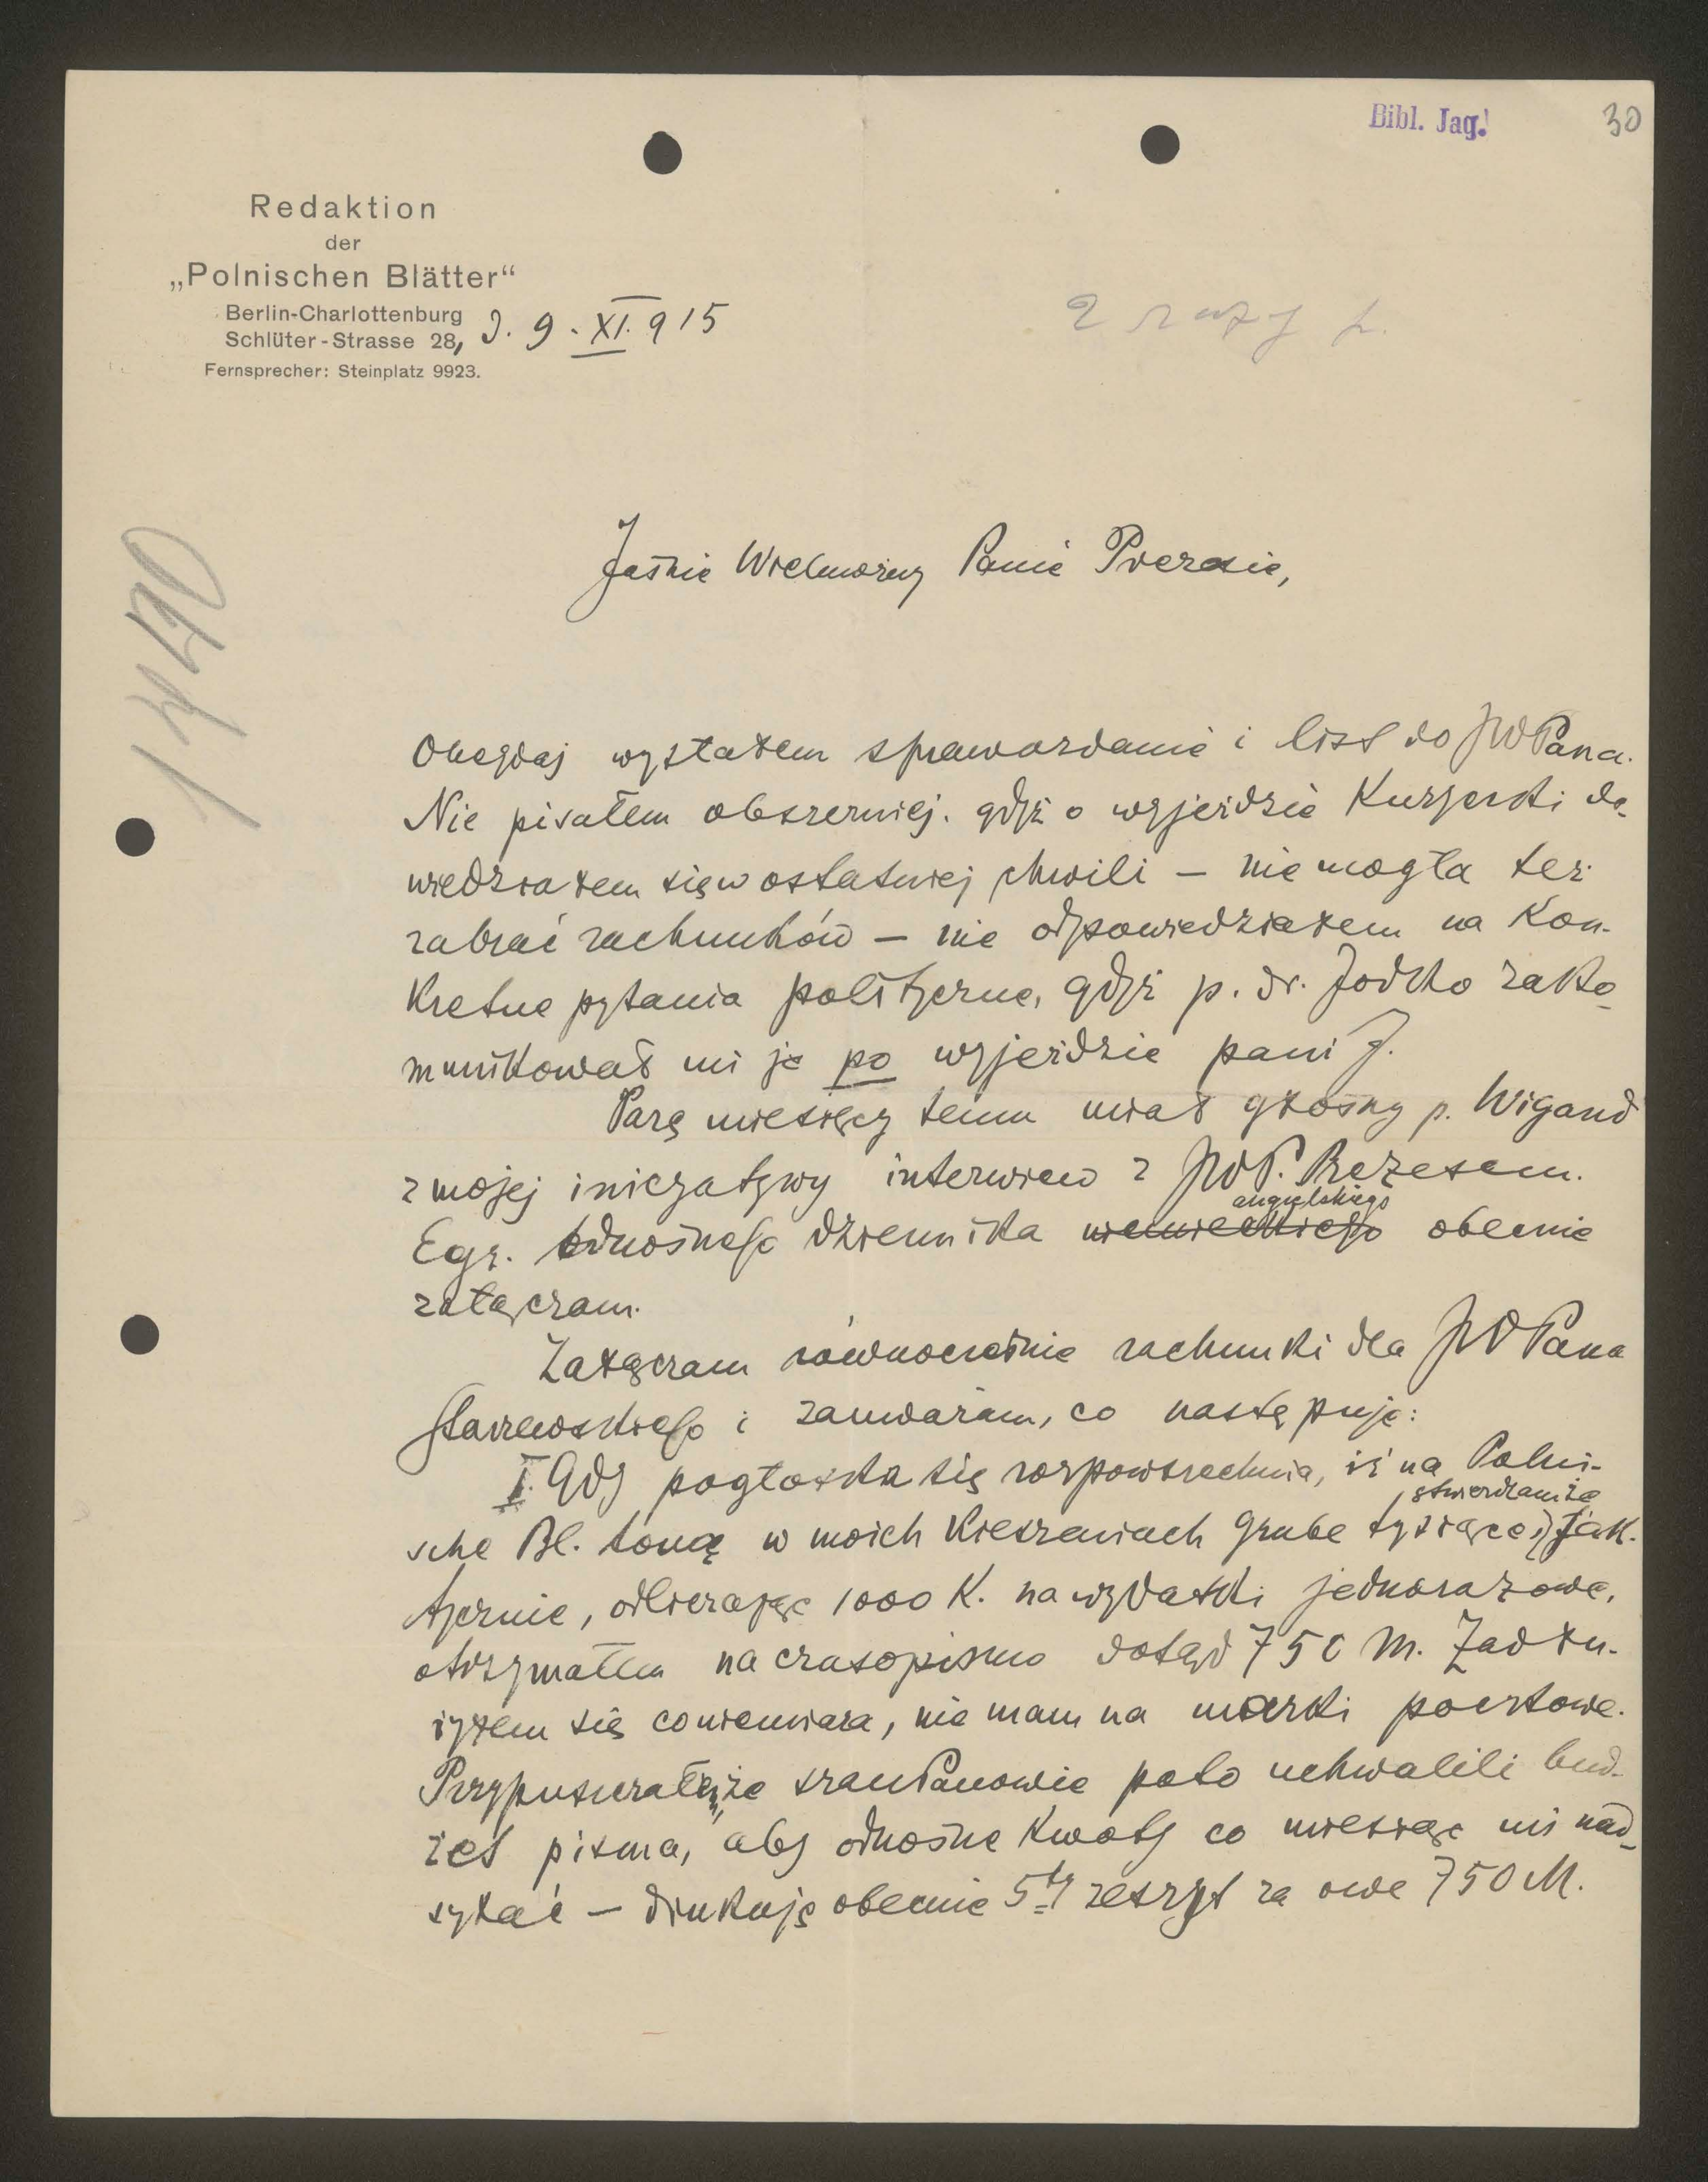 Bibl. Jag.
30
Redaktion
der
„Polnischen Blätter“
Berlin-Charlottenburg
Schlüter-Strasse 28, d. 9. XI. 915
Fernsprecher: Steinplatz 9923.
2 razy
1440
Jaśnie Wielmożny Panie Prezesie,
Onegdaj wysłałem sprawozdanie i list do JWPana.
Nie pisałem obszerniej, gdyż o wyjeździe Kuryerki do-
wiedziałem się w ostatniej chwili — nie mogła też
zabrać rachunków — nie odpowiedziałem na kon-
kretne pytania polityczne, gdyż p. dr. Jodko zako-
munikował mi je po wyjeździe pani J.
Parę miesięcy temu miał głośny p. Wigand
z mojej inicyatywy interwiew z JWP. Prezesem.
angielskiego
Egz. odnośnego dziennika niemieckiego obecnie
załączam.
Załączam równocześnie rachunki dla JWPana
i zauważam, co następuje:
I. Gdy pogłoska się rozpowszechnia, iż na Polni-
stwierdzam że
sche Bl. toną w moich kieszeniach grube tysiące, fak-
tycznie, odbierając 1000 K. na wydatki jednorazowe,
otrzymałem na czasopismo dotąd 750 M. Zadłu-
żyłem się co niemiara, nie mam na marki pocztowe.
Przypuszczałem, że szan Panowie poto uchwalili bud-
żet pisma, aby odnośne kwoty co miesiąc mi nad-
syłać — drukuję obecnie 5ty zeszyt za owe 750 M.